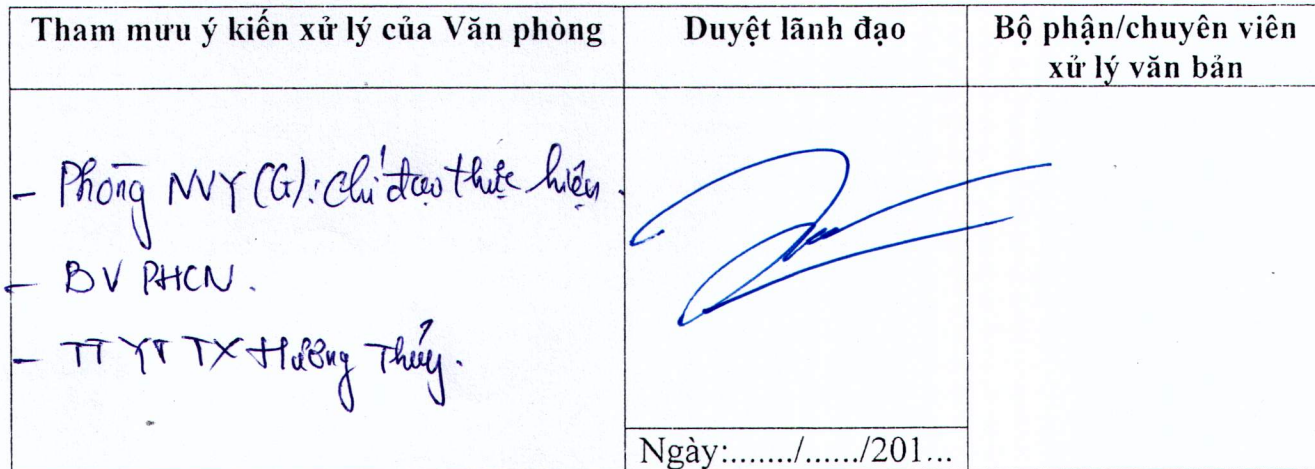 Tham mưu ý kiến xử lý của Văn phòng
Duyệt lãnh đạo
Bộ phận/chuyên viên
xử lý văn bản
- Phòng NVY (G): chỉ đạo thực hiện.
- BV PHCN.
- TT YT TX Hương Thủy.
Ngày:......./....../201...